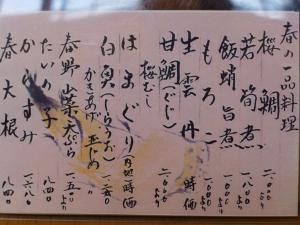 春の一品料理
桜鯛 二、〇〇〇より
若筍煮 一、八〇〇より
飯蛸旨煮 一、〇〇〇より
もろこ 一、〇〇〇より
生雲丹 時価
甘鯛(ぐじ)
桜むし 二、〇〇〇より
はまぐり(内地)時価
白魚(しらうお)
かきあげ 玉〆め 一、二五〇
春野山菜天ぷら 一、五〇〇より
たいの子 八四〇
からすみ 一、六八〇
春大根 八四〇